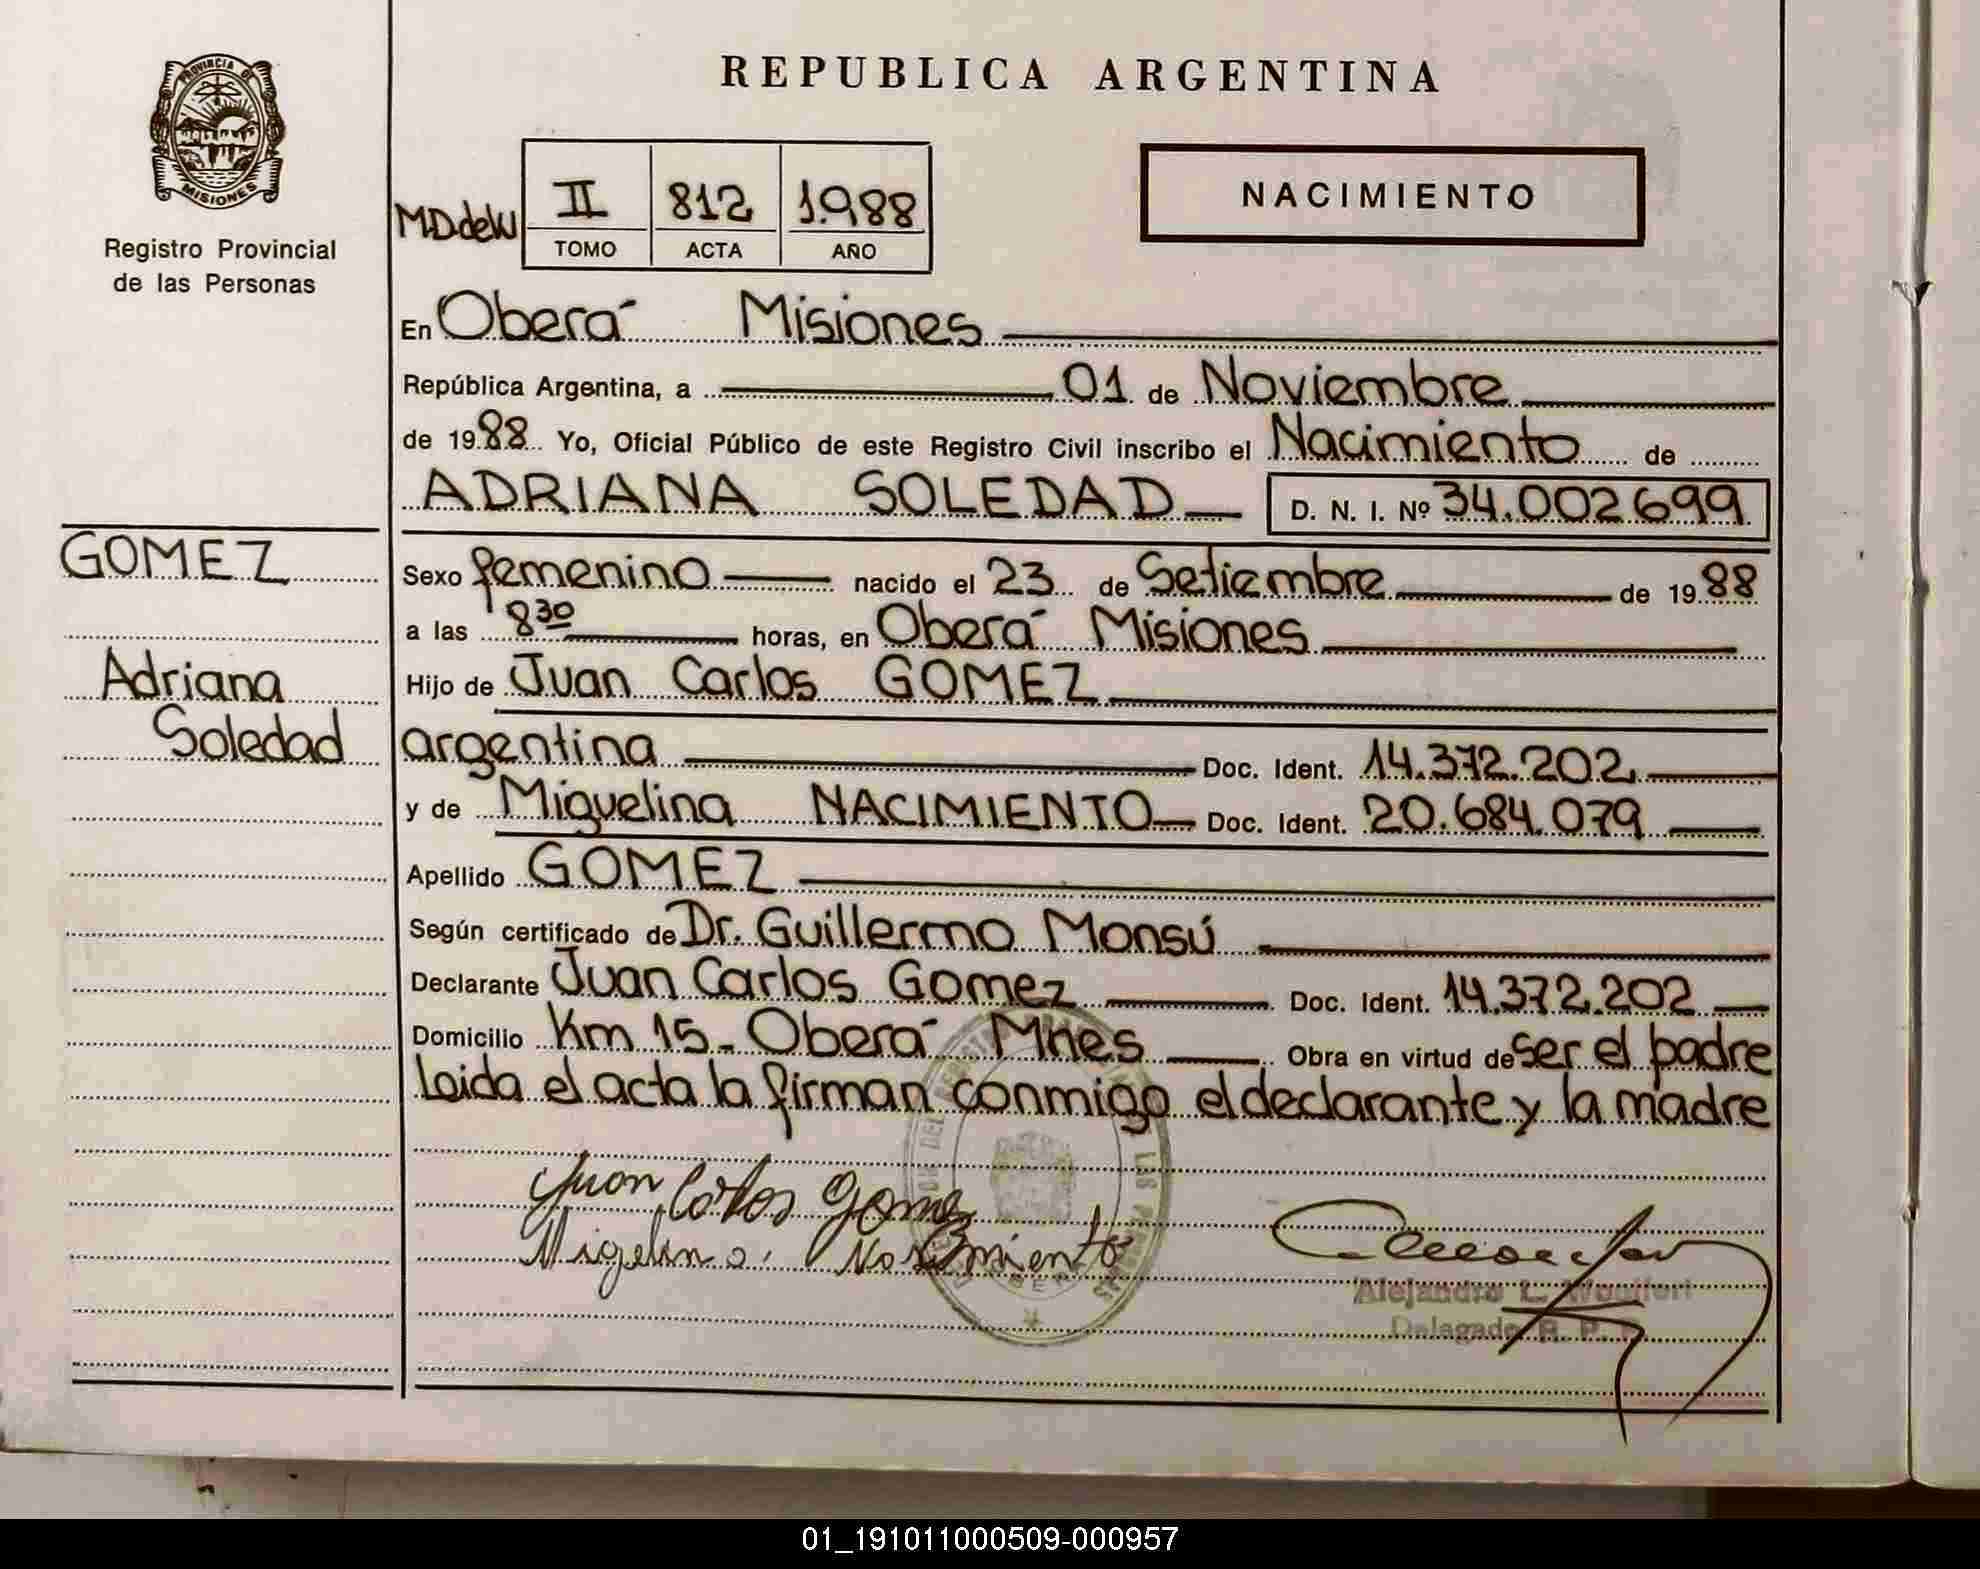 PROVINCIA DE
MISIONES
Registro Provincial
de las Personas
REPUBLICA ARGENTINA
M.D.deW
II 812 1.988
TOMO ACTA AÑO
NACIMIENTO
En Oberá Misiones
República Argentina, a 01 de Noviembre
de 1988 Yo, Oficial Público de este Registro Civil inscribo el Nacimiento de
ADRIANA SOLEDAD D. N. I. Nº 34.002699
GOMEZ
Adriana
Soledad
Sexo femenino nacido el 23 de Setiembre de 1988
a las 8 30 horas, en Oberá Misiones
Hijo de Juan Carlos GOMEZ
argentina Doc. Ident. 14.372.202
y de Miguelina NACIMIENTO Doc. Ident. 20.684.079
Apellido GOMEZ
Según certificado de Dr. Guillermo Monsú
Declarante Juan Carlos Gomez Doc. Ident. 14.372.202
Domicilio Km 15- Oberá Mnes Obra en virtud de ser el padre
Leida el acta la firman conmigo el declarante y la madre
Juan Carlos Gomez
Migelina Nacimiento
Alejandro L.
Delegado R. P.
01_191011000509-000957